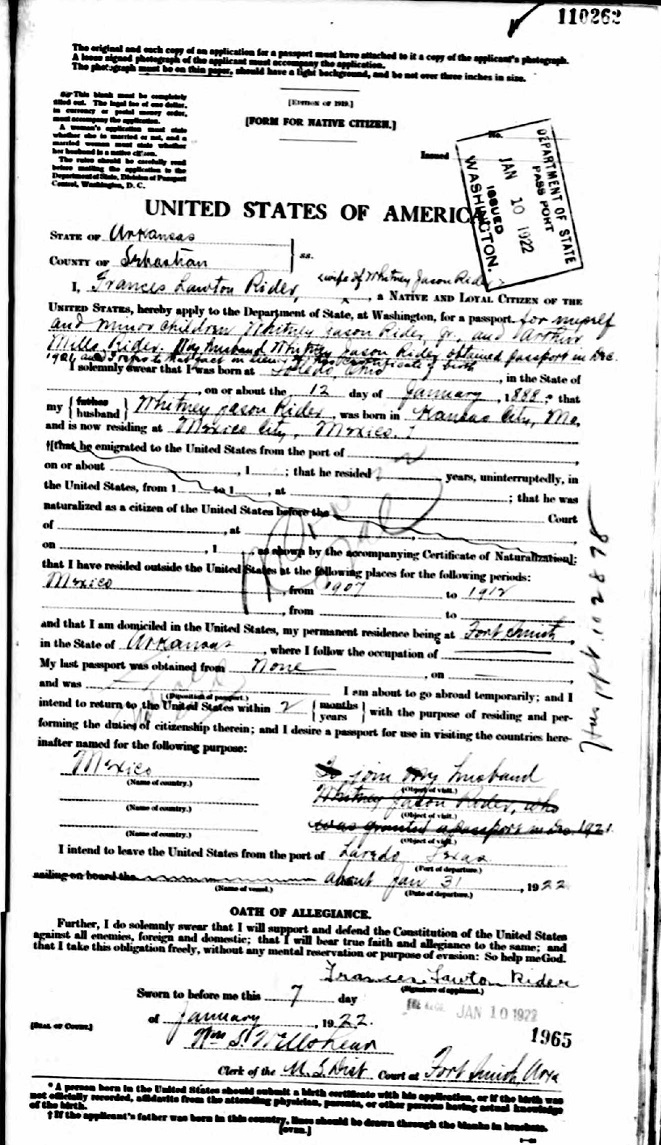 110262
The original and each copy of an application for a passport must have attached to it a copy of the applicant's photograph.
A loose signed photograph of the applicant must accompany the application.
The photograph must be on thin paper, should have a light background, and be not over three inches in size.
This blank must be completely
filled out. The legal fee of one dollar,
in currency or postal money order,
must accompany the application.
A woman's application must state
whether she is married or not, and a
married woman must state whether
her husband is a native citizen.
The rules should be carefully read
before mailing the application to the
Department of State, Division of Passport
Control, Washington, D. C.
[EDITION OF 1919.]
[FORM FOR NATIVE CITIZEN.]
No.
Issued
DEPARTMENT OF STATE
PASSPORT
JAN 10 1922
ISSUED
WASHINGTON.
UNITED STATES OF AMERICA
STATE OF Arkansas
COUNTY OF Sebastian
ss.
wife of Whitney Jason Rider
I, Frances Lawton Rider, a NATIVE AND LOYAL CITIZEN OF THE
UNITED STATES, hereby apply to the Department of State, at Washington, for a passport for myself
and minor children Whitney Jason Rider, Jr., and Arthur
Mills Rider. My husband Whitney Jason Rider obtained passport in Dec.
1921 and certificate of birth
I solemnly swear that I was born at Toledo Ohio, in the State of
, on or about the 12 day of January, 1888; that
my {father husband} Whitney Jason Rider, was born in Kansas City, Mo,
and is now residing at Mexico City, Mexico. †
†[that he emigrated to the United States from the port of
on or about , 1 ; that he resided years, uninterruptedly, in
the United States, from 1 to 1 , at ; that he was
naturalized as a citizen of the United States before the Court
of , at ,
on , 1 , as shown by the accompanying Certificate of Naturalization];
that I have resided outside the United States at the following places for the following periods:
Mexico , from 1907 to 1912
, from to
and that I am domiciled in the United States, my permanent residence being at Fort Smith,
in the State of Arkansas, where I follow the occupation of
My last passport was obtained from None , on
and was (Disposition of passport.) I am about to go abroad temporarily; and I
intend to return to the United States within 2 {months years} with the purpose of residing and per-
forming the duties of citizenship therein; and I desire a passport for use in visiting the countries here-
inafter named for the following purpose:
Mexico To join my husband
(Name of country.) (Object of visit.)
Whitney Jason Rider, who
(Name of country.) (Object of visit.)
was granted a passport in Dec. 1921
(Name of country.) (Object of visit.)
I intend to leave the United States from the port of Laredo Texas
(Port of departure.)
sailing on board the about Jan 31 , 1922
(Name of vessel.) (Date of departure.)
Hus ppt. 112878
OATH OF ALLEGIANCE.
Further, I do solemnly swear that I will support and defend the Constitution of the United States
against all enemies, foreign and domestic; that I will bear true faith and allegiance to the same; and
that I take this obligation freely, without any mental reservation or purpose of evasion: So help me God.
Frances Lawton Rider
(Signature of applicant.)
Sworn to before me this 7 day
JAN 10 1922
of January , 1922.
[SEAL OF COURT.]
1965
Wm S. Wellshear
Clerk of the U. S. Dist Court at Fort Smith, Ark
* A person born in the United States should submit a birth certificate with his application, or if the birth was
not officially recorded, affidavits from the attending physician, parents, or other persons having actual knowledge
of the birth.
† If the applicant's father was born in this country, lines should be drawn through the blanks in brackets.
[OVER.]